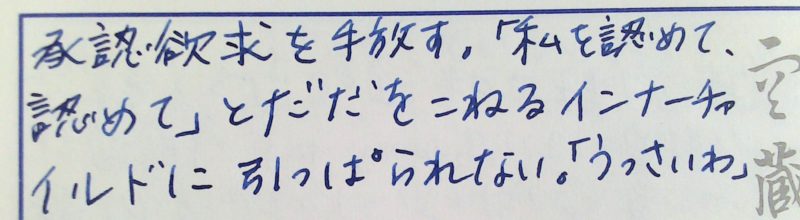 承認欲求を手放す。「私を認めて、
認めて」とだだをこねるインナーチャ
イルドに引っぱられない。「うっさいわ」
空蔵